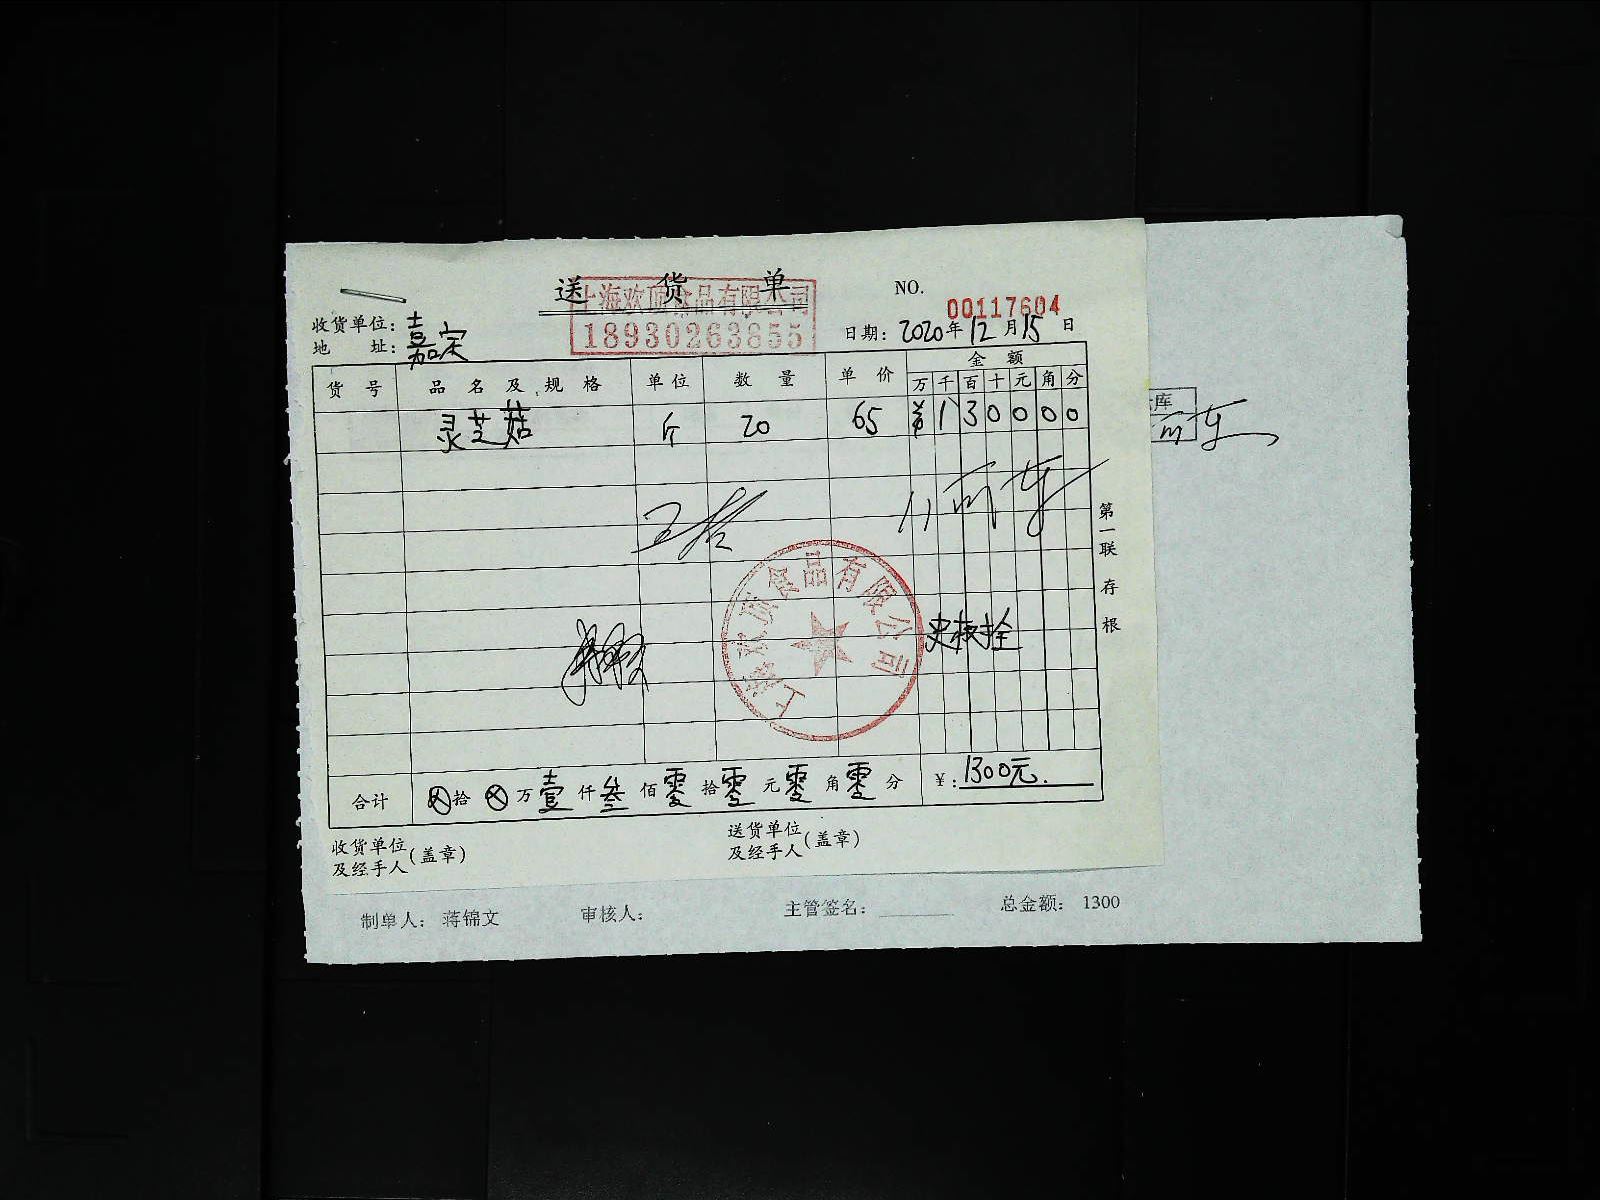 送 货 单
上海欢顶食品有限公司
18930263855
NO. 00117604
收货单位：
地 址：
嘉定
日期：2020年12月15日
货 号 品 名 及 规 格 单 位 数 量 单 价 金 额
万 千 百 十 元 角 分
灵芝菇 斤 20 65 1 3 0 0 0 0
库
上海欢顶食品有限公司
第一联 存根
合计 ⊗拾 ⊗万 壹仟 叁佰 零拾 零元 零角 零分 ¥：1300元.
收货单位
及经手人（盖章）
送货单位
及经手人（盖章）
制单人： 蒋锦文 审核人： 主管签名： 总金额： 1300